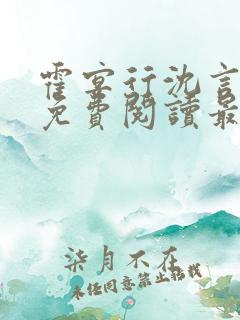 霍宴行沈言
免費閱讀最
柒月不在
未经同意禁止搭讪